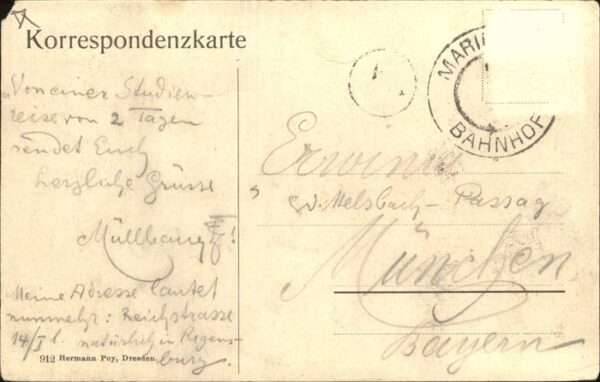 Korrespondenzkarte
Von einer Studien-
reise von 2 Tagen
sendet Euch
herzliche Grüsse
Meine Adresse lautet
nunmehr: Reichstrasse
14/I l. natürlich in Regens-
burg.
912 Hermann Poy, Dresden.
MARI
BAHNHOF
Erwinia
Passag
München
Bayern